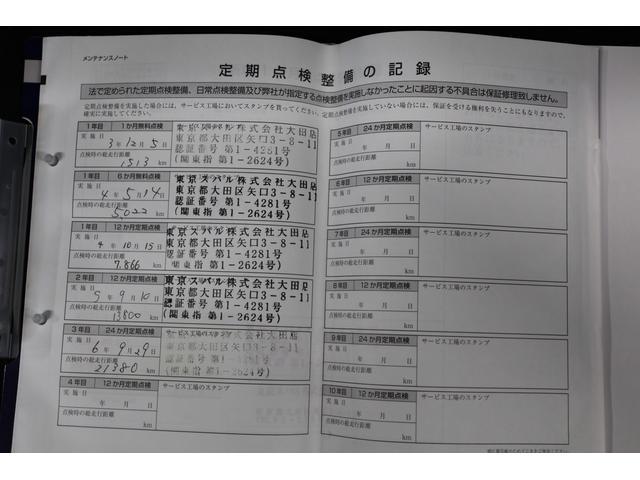 メンテナンスノート
定期点検整備の記録
法で定められた定期点検整備、日常点検整備及び弊社が指定する点検整備を実施しなかったことに起因する不具合は保証修理致しません。
定期点検整備を実施した場合には、サービス工場においてスタンプを貰ってください。定期点検整備を実施していない場合には、保証を受ける権利を失うことにもなりますので、
確実に実施してください。
1年目 1か月無料点検
実施日
3年12月5日
点検時の総走行距離
1513 km
東京スバル株式会社大田店
東京都大田区矢口3-8-11
認証番号 第1-4281号
(関東指 第1-2624号)
1年目 6か月無料点検
実施日
4年5月14日
点検時の総走行距離
5022 km
東京スバル株式会社大田店
東京都大田区矢口3-8-11
認証番号 第1-4281号
(関東指 第1-2624号)
1年目 12か月定期点検
実施日
4年10月15日
点検時の総走行距離
7,866 km
東京スバル株式会社大田店
東京都大田区矢口3-8-11
認証番号 第1-4281号
(関東指 第1-2624号)
2年目 12か月定期点検
実施日
5年9月10日
点検時の総走行距離
13800 km
東京スバル株式会社大田店
東京都大田区矢口3-8-11
認証番号 第1-4281号
(関東指 第1-2624号)
3年目 24か月定期点検
実施日
6年9月29日
点検時の総走行距離
21380 km
東京都大田区矢口3-8-11
認証番号 第1-4281号
(関東指 第1-2624号)
4年目 12か月定期点検
サービス工場のスタンプ
実施日
年 月 日
点検時の総走行距離
km
5年目 24か月定期点検
サービス工場のスタンプ
実施日
年 月 日
点検時の総走行距離
km
6年目 12か月定期点検
サービス工場のスタンプ
実施日
年 月 日
点検時の総走行距離
km
7年目 24か月定期点検
サービス工場のスタンプ
実施日
年 月 日
点検時の総走行距離
km
8年目 12か月定期点検
サービス工場のスタンプ
実施日
年 月 日
点検時の総走行距離
km
9年目 24か月定期点検
サービス工場のスタンプ
実施日
年 月 日
点検時の総走行距離
km
10年目 12か月定期点検
サービス工場のスタンプ
実施日
年 月 日
点検時の総走行距離
km